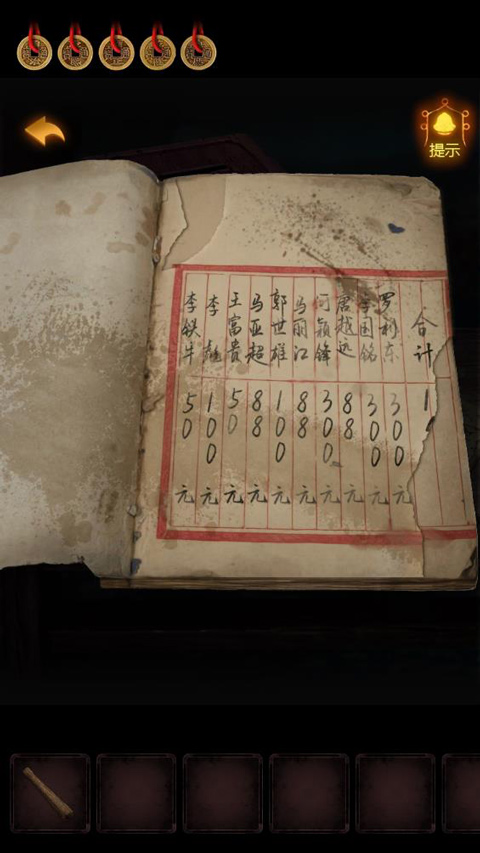 提示
李铁牛 50元
李 100元
王富贵 50元
马亚超 88元
郭世雄 100元
马丽江 88元
何颖锋 300元
越远 88元
国铭 300元
罗利东 300元
合计 1